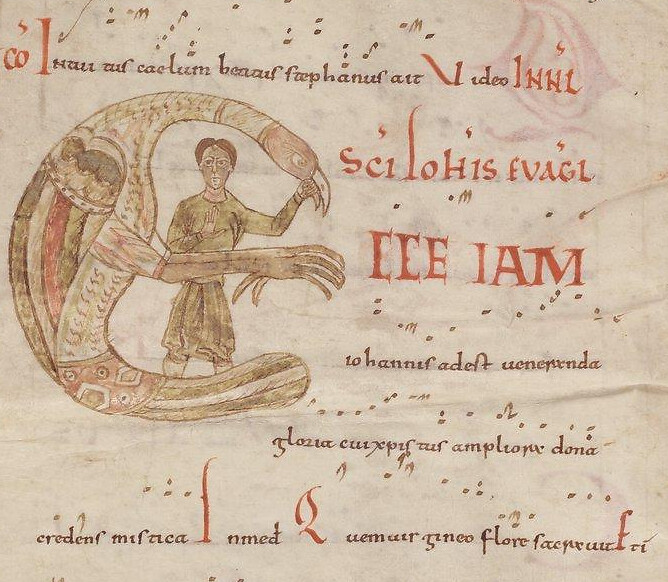 cō Intuitus caelum beatus stephanus ait Video INNL
SCI IOHIS EVAGL
ECCE IAM
iohannis adest ueneranda
gloria cui xpistus ampliora dona
credens mistica Inmed Quem uirgineo flore sacrauit Et i